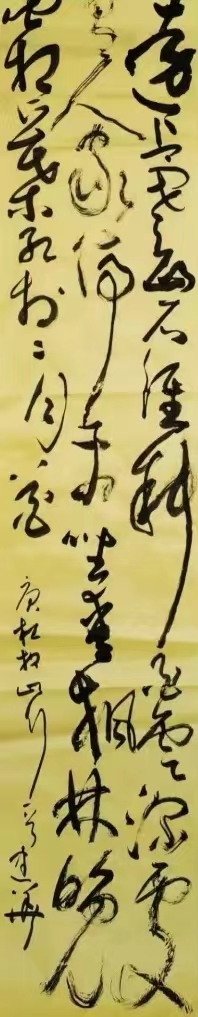 遠上寒山石徑斜白雲深處
有人家停車坐愛楓林晚
霜葉紅於二月花
唐杜牧山行 建華